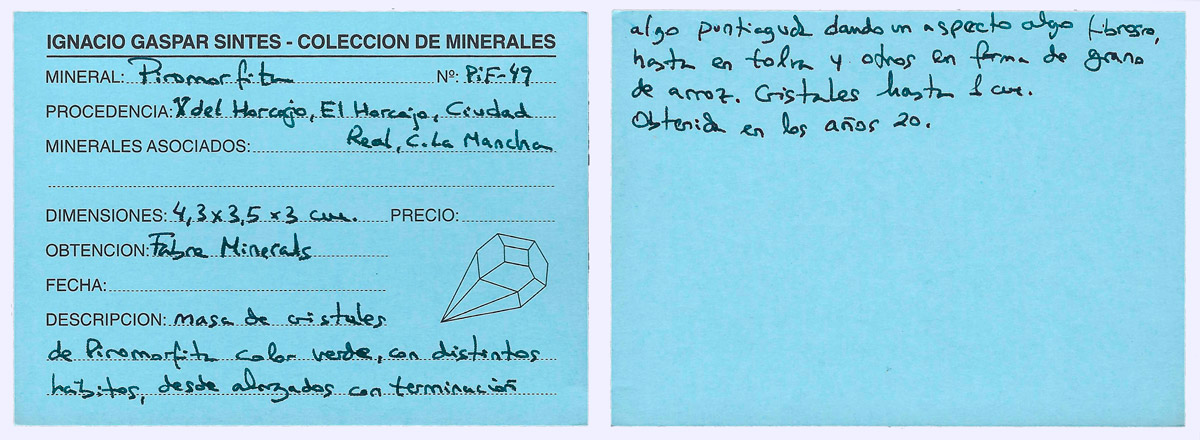 IGNACIO GASPAR SINTES - COLECCION DE MINERALES
MINERAL: Piromorfita Nº: PiF-49
PROCEDENCIA: del Horcajo, El Horcajo, Ciudad
MINERALES ASOCIADOS: Real, C. La Mancha
DIMENSIONES: 4,3 x 3,5 x 3 cm. PRECIO:
OBTENCION: Fabre Minerals
FECHA:
DESCRIPCION: masa de cristales
de Piromorfita color verde, con distintos
habitos, desde alargados con terminación
algo puntiaguda dando un aspecto algo fibroso,
hasta en tolva y otros en forma de grano
de arroz. Cristales hasta 1 cm.
Obtenida en los años 20.